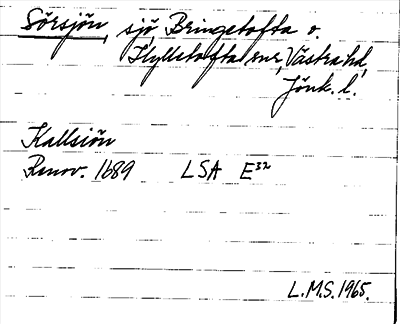 Sörsjön, sjö Bringetofta o.
Hylletofta snr, Västra hd,
Jönk. l.
Kallsiön
Renov. 1689 LSA E³²
L.M.S. 1965.